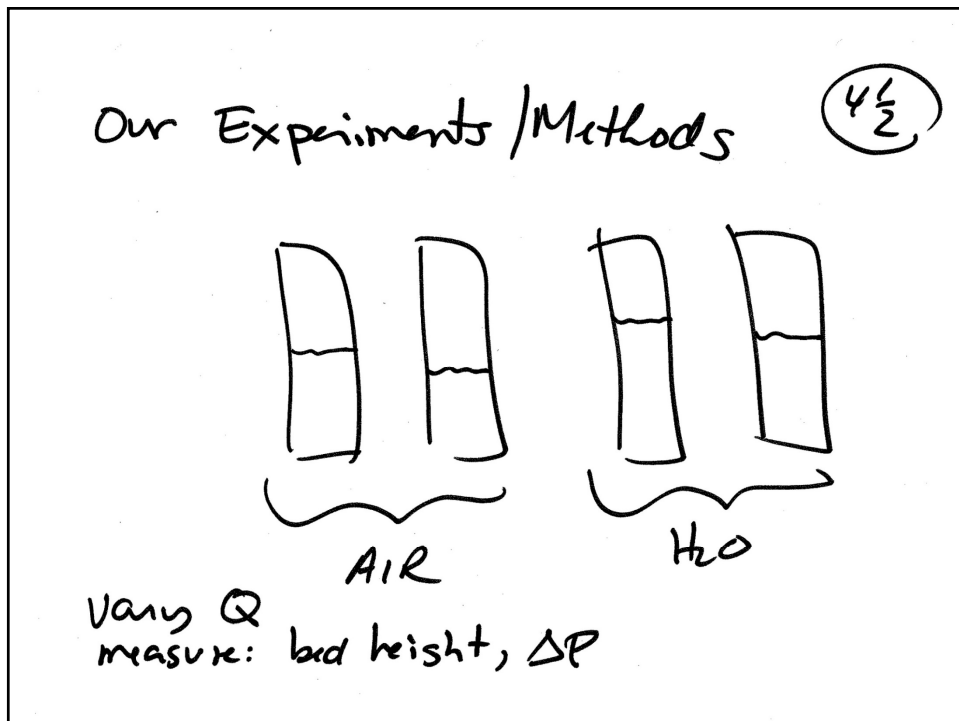 Our Experiments/Methods
4 1/2
AIR
H2O
Vary Q
measure: bed height, ΔP